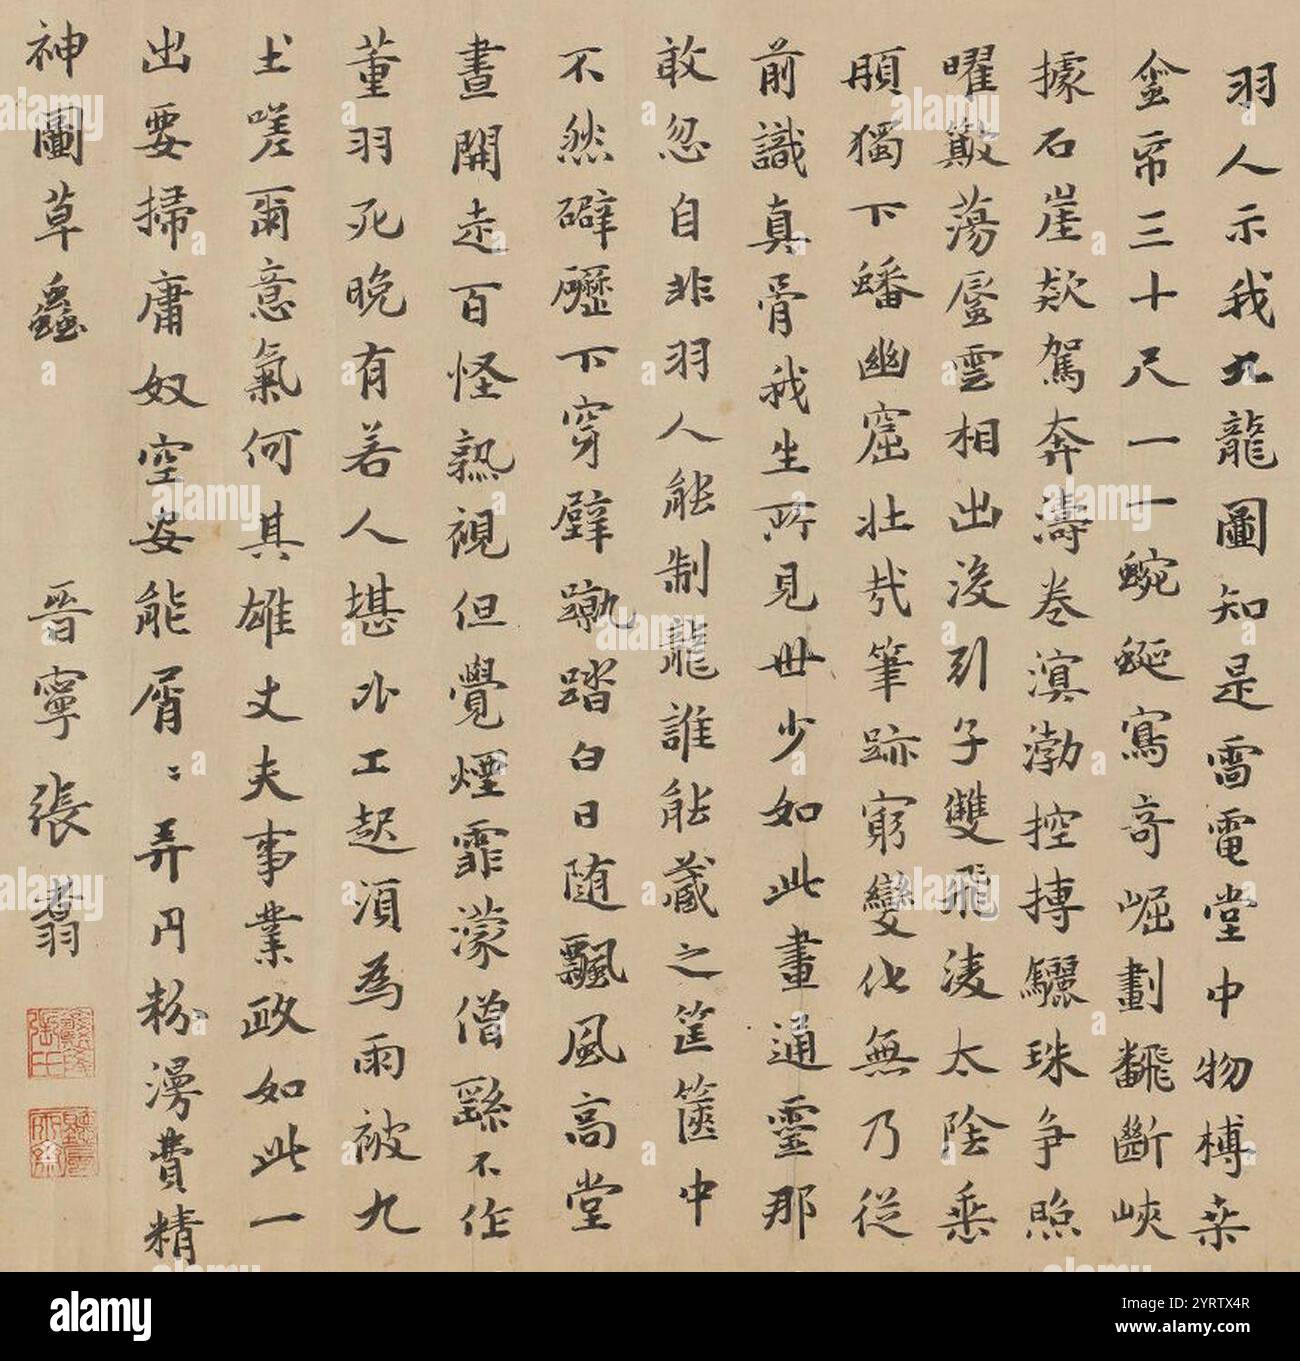 羽人示我九龍圖知是雷電堂中物榑桒
金帛三十尺一一蜿蜒寫奇崛劃飜斷峽
據石崖欻駕奔濤卷溟渤控摶驪珠争照
曜歎蕩蜃雲相出没引子雙飛凌太陰垂
頥獨下蟠幽窟壯㦲筆跡窮變化無乃従
前識真骨我生所見世少如此畫通靈那
敢忽自非羽人能制龍誰能藏之筐篋中
不然礔礰下穿壁踏白日随飄風高堂
晝開走百怪熟視但覺煙霏濛僧繇不作
董羽死晚有若人堪代工起須為雨被九
土嗟爾意氣何其雄丈夫事業政如此一
出要掃庸奴空安能屑〻弄丹粉漫費精
神圖草蟲
晋寧張翥
alamy
Image ID: 2YRTX4R
www.alamy.com